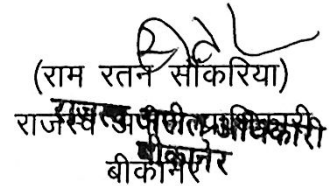 (राम रतन सौंकरिया)
राजस्व अपील अधिकारी
बीकानेर